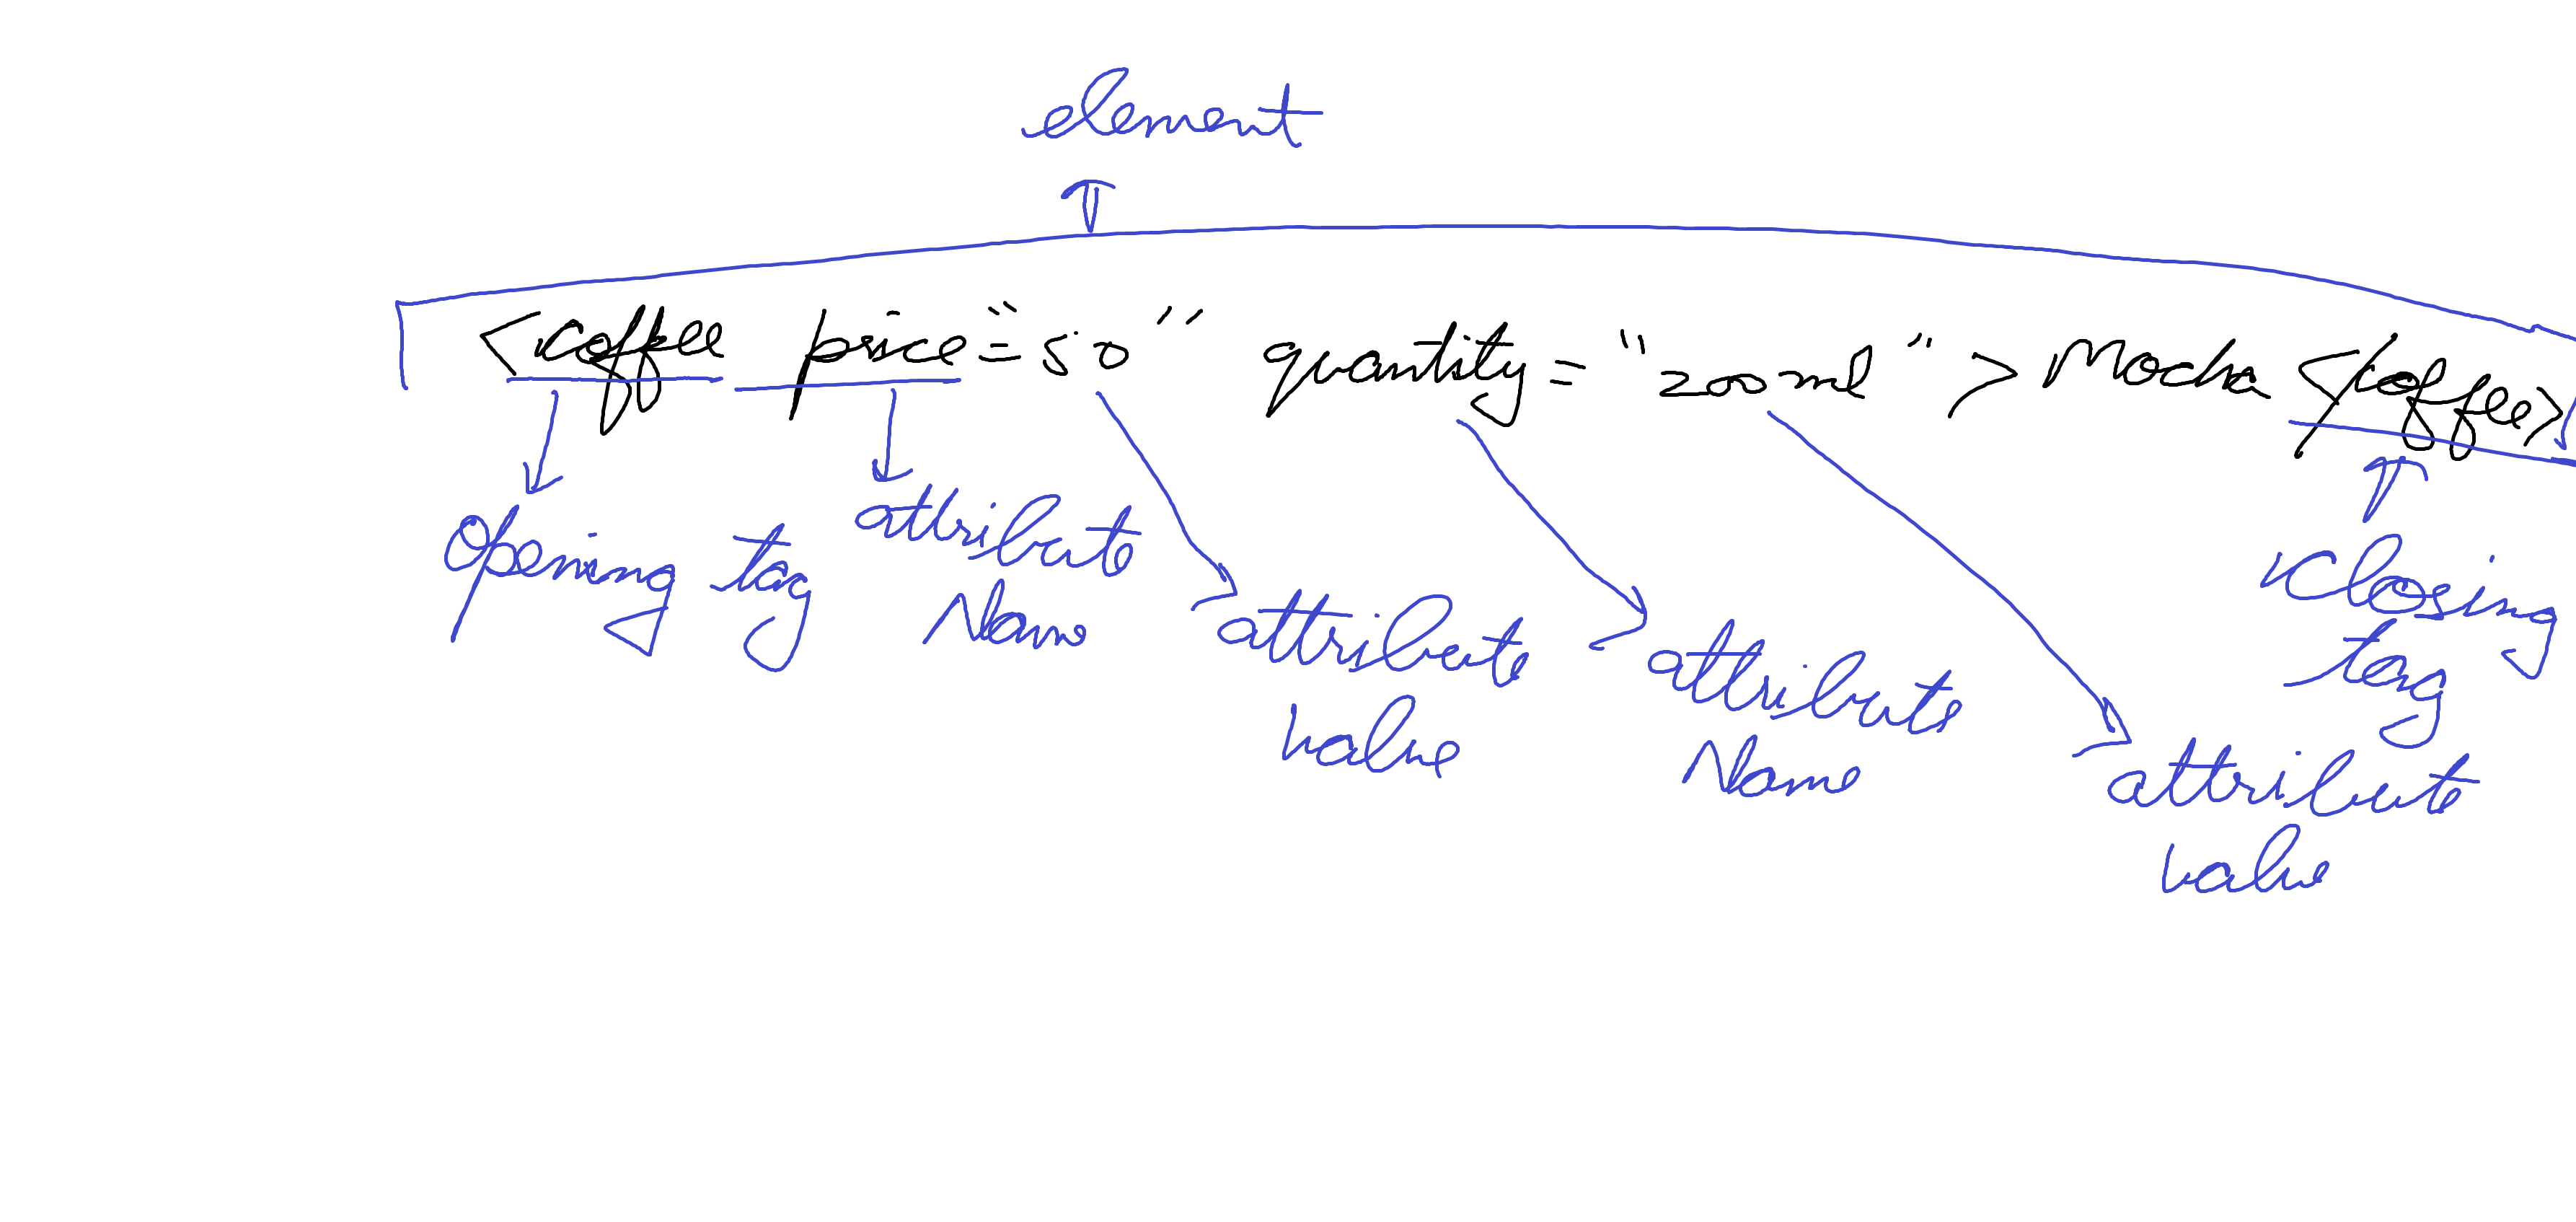 element
<coffee price="50" quantity="200ml">Mocha</coffee>
Opening tag
attribute
Name
attribute
value
attribute
Name
attribute
value
Closing
tag